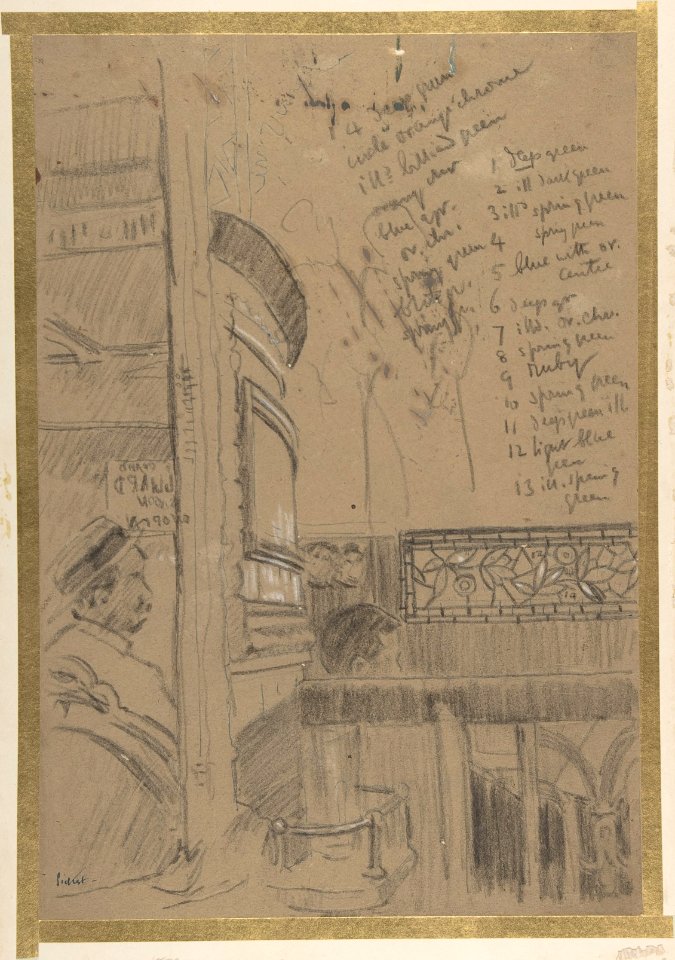 4 deep green
circle orange chrome
ill? brilliand green
orange chr
blue & gr.
or. chr.
spring green
blue gr.
spring gr.
1 deep green
2 ill dark green
3 ill? spring green
4 spring green
5 blue with or.
centre
6 deep gr
7 ill?. or. chr.
8 spring green
9 Ruby
10 spring green
11 deep green ill
12 light blue
green
13 ill. spring
green
12
Sickert -